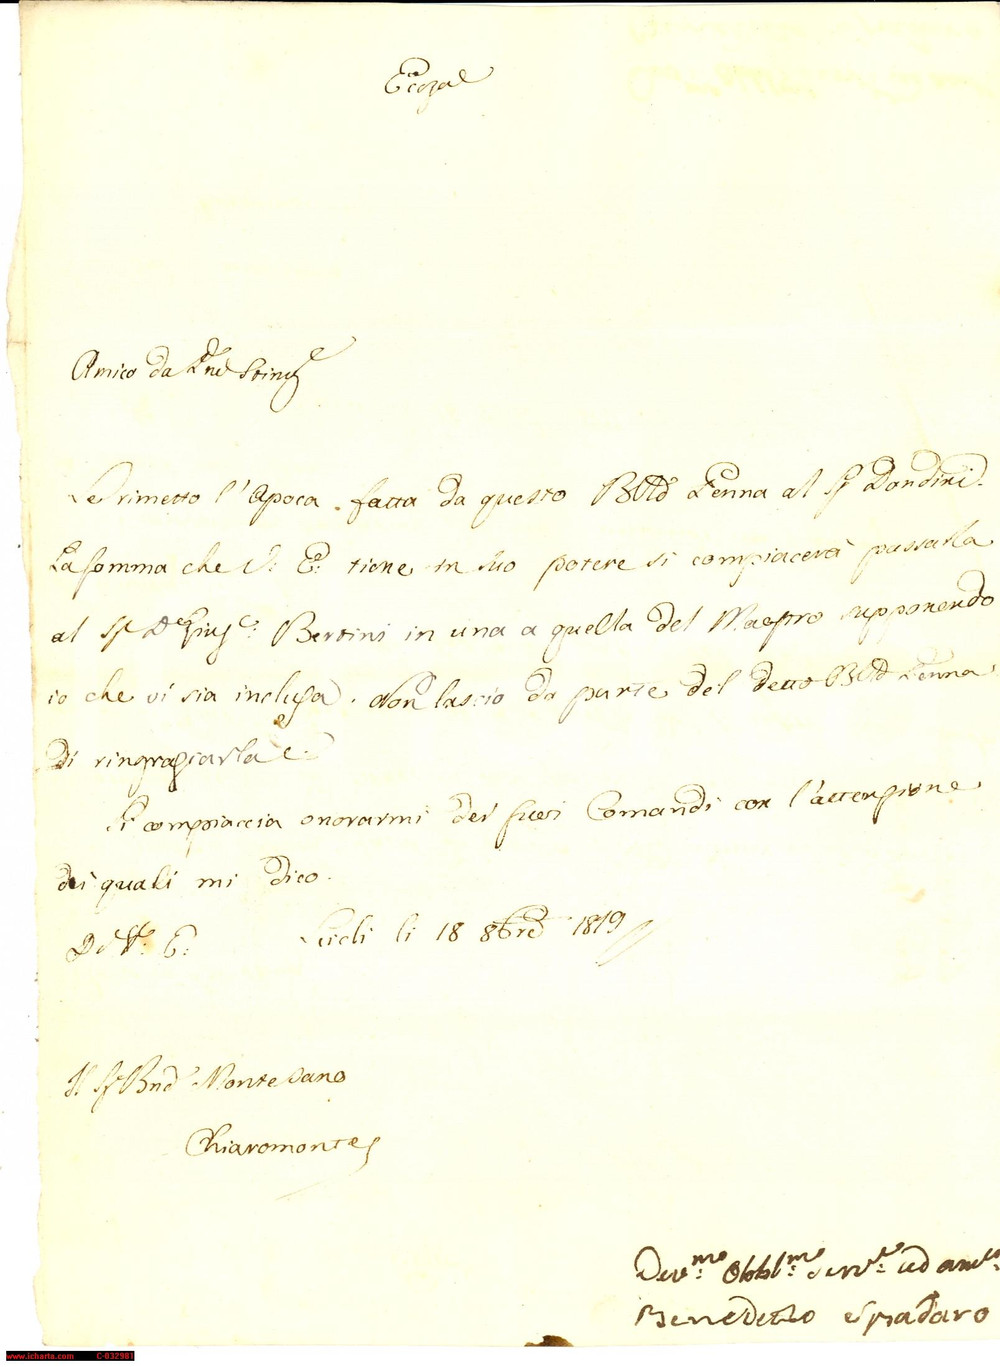 Amico da
Le rimetto l'apoca fatta da questo Penna al Sr Dandini.
La somma che V: E: tiene in suo potere si compiacerà passarla
al Sr Bertini in una a quella del Maestro supponendo
io che vi sia inclusa. Non lascio da parte del detto Penna
Di ringraziarla
Si compiaccia onorarmi dei suoi Comandi con l'attenzione
dei quali mi dico.
D. V. E: Scicli li 18 8bre 1819
Montesano
Chiaromonte
Devmo: Obblmo: servre: ed amco:
Benedetto Spadaro
www.icharta.com C-032981